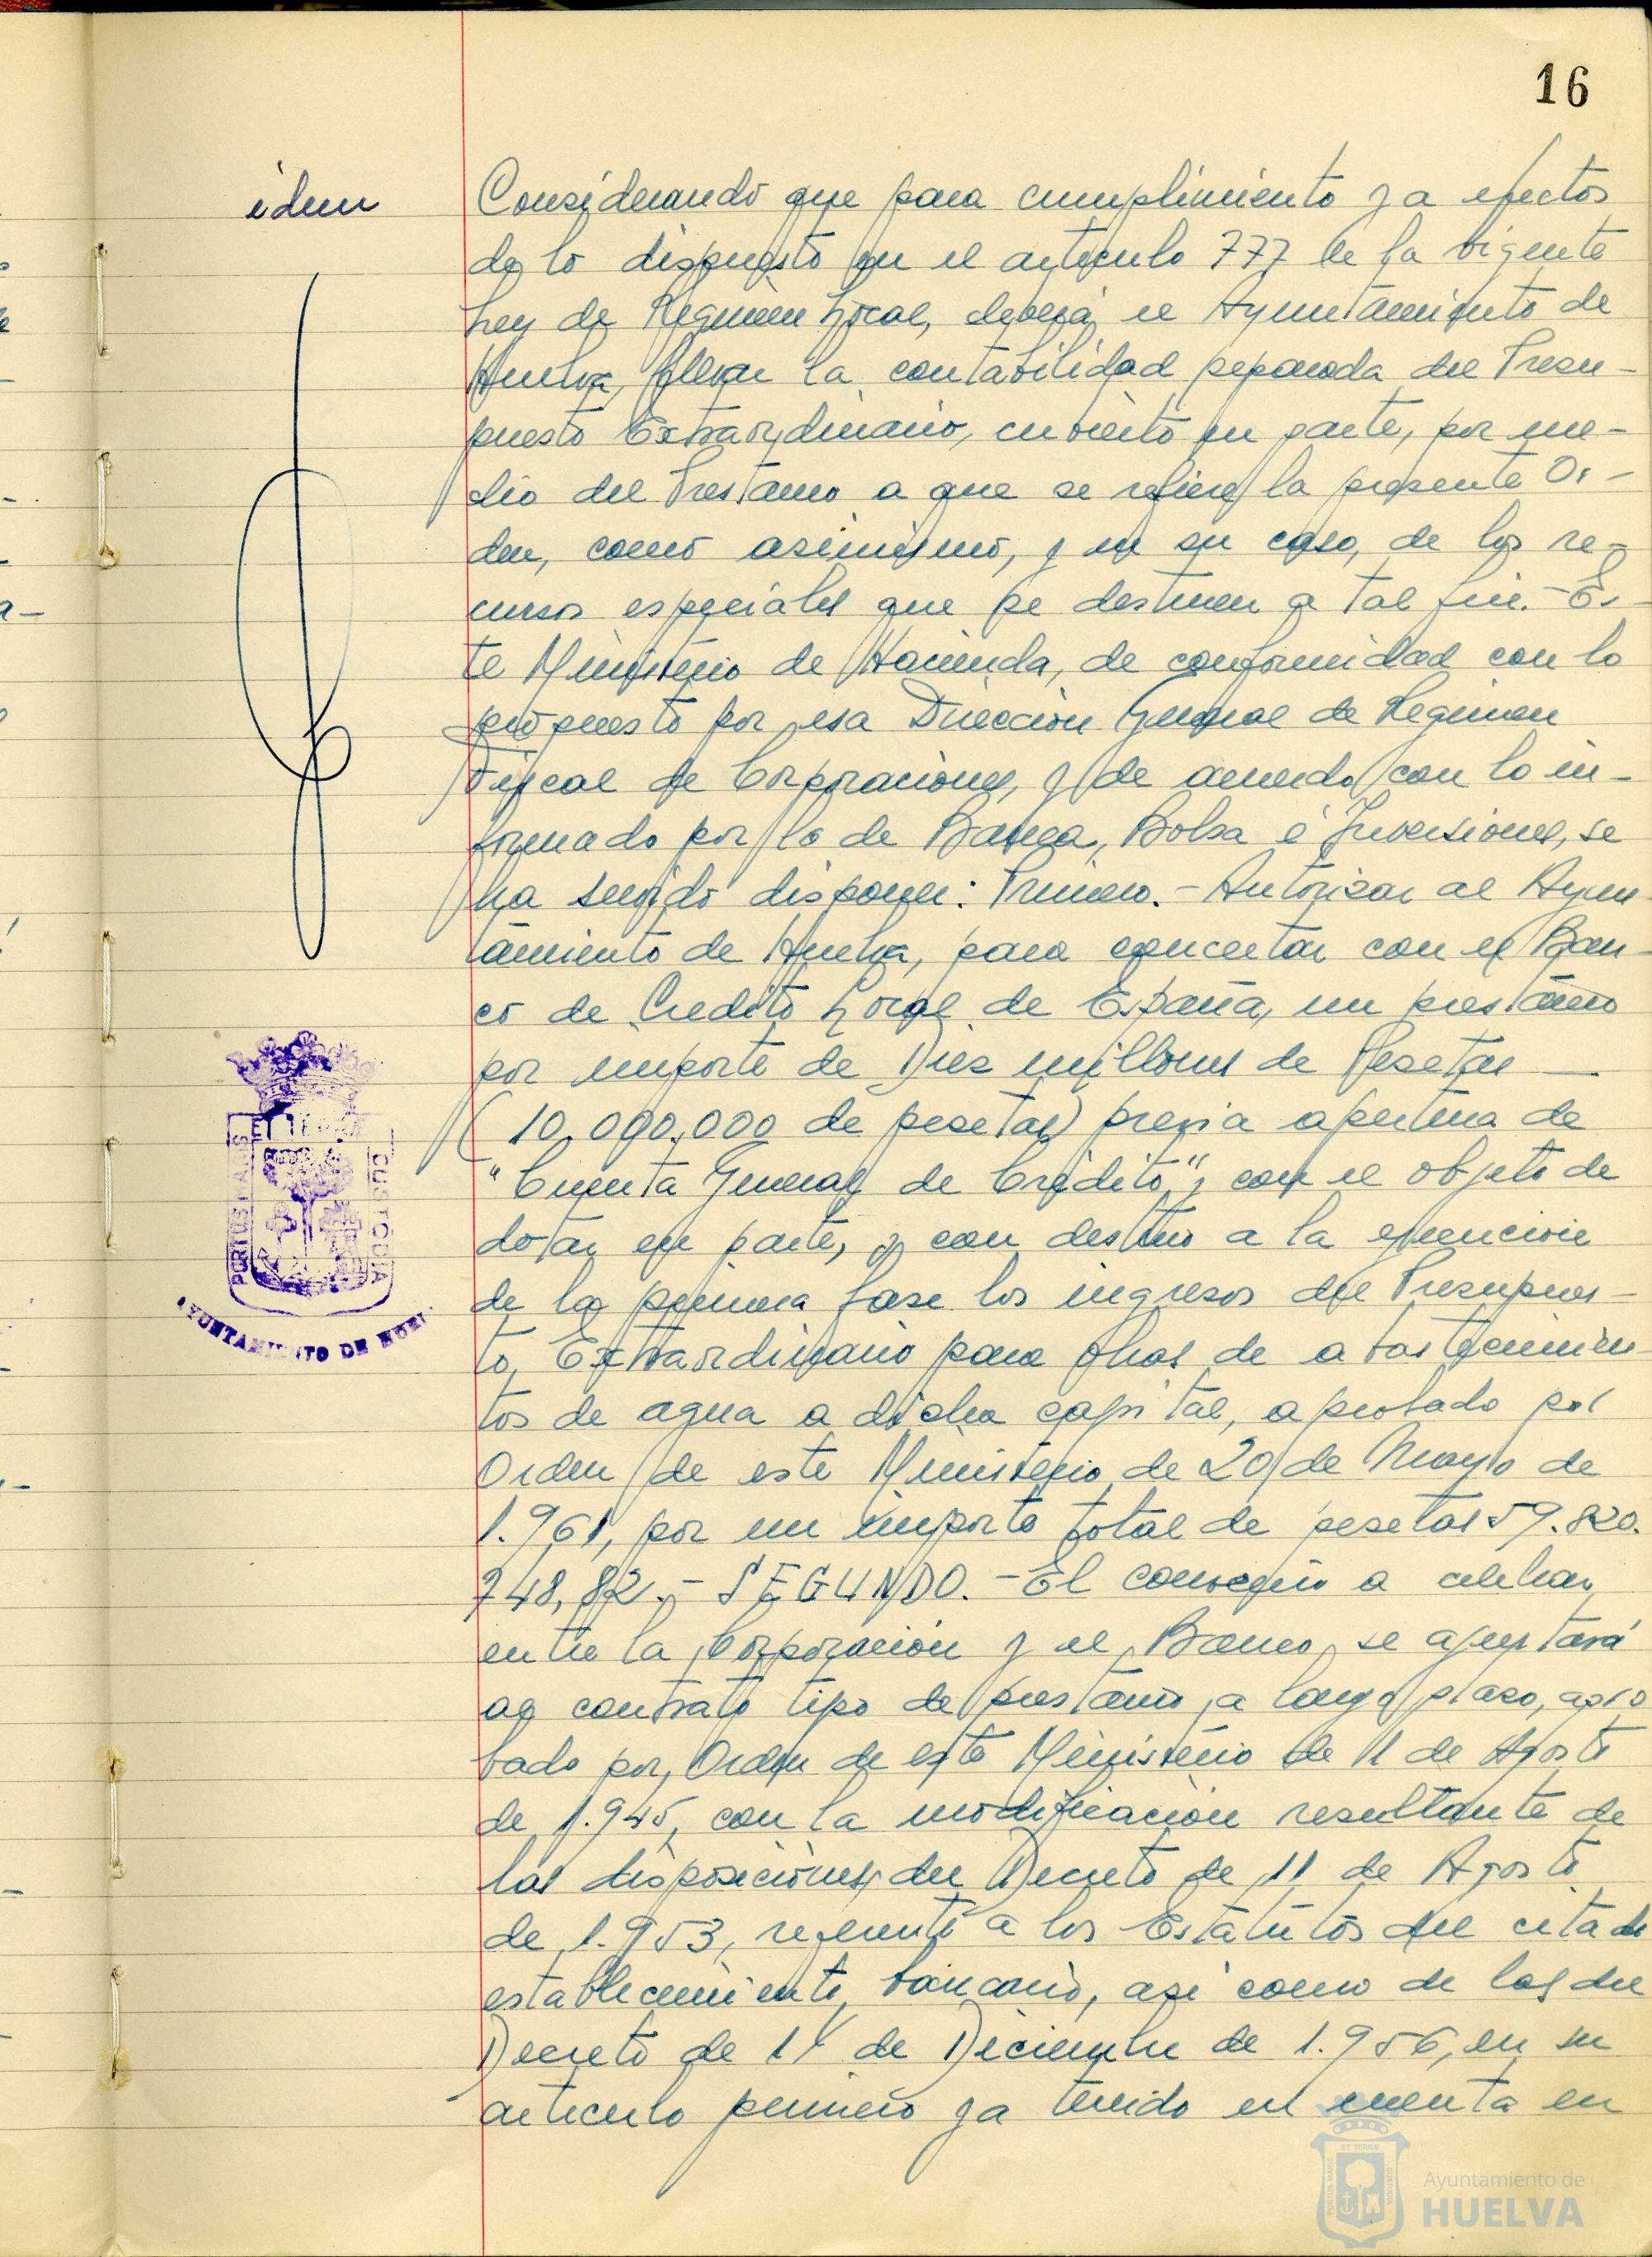 16
idem
Considerando que para cumplimiento y a efectos
de lo dispuesto en el articulo 777 de la vigente
Ley de Regimen Local, deberá el Ayuntamiento de
Huelva, llevar la contabilidad separada del Presu-
puesto Extraordinario, cubierto en parte, por me-
dio del Prestamo a que se refiere la presente Or-
den, como asimismo, y en su caso, de los re-
cursos especiales que se destinen a tal fin.- Es-
te Ministerio de Hacienda, de conformidad con lo
propuesto por esa Dirección General de Regimen
Fiscal de Corporaciones, y de acuerdo con lo in-
formado por la de Banca, Bolsa é Inversiones, se
ha servido disponer: Primero.- Autorizar al Ayun-
tamiento de Huelva, para concertar con el Ban-
co de Credito Local de España, un prestamo
por importe de Diez millones de Pesetas —
(10.000.000 de pesetas) previa apertura de
"Cuenta General de Crédito", con el objeto de
dotar en parte, y con destino a la ejecución
de la primera fase los ingresos del Presupues-
to Extraordinario para obras de abastecimien-
tos de agua a dicha capital, aprobado por
Orden de este Ministerio de 20 de Mayo de
1.961, por un importe total de pesetas 59.820.
748,82.- SEGUNDO.- El convenio a celebrar
entre la Corporación y el Banco, se ajustará
al contrato tipo de prestamo a largo plazo, apro
bado por Orden de este Ministerio de 11 de Agosto
de 1.945, con la modificación resultante de
las disposiciones del Decreto de 11 de Agosto
de 1.953, referente a los Estatutos del citado
establecimiento bancario, asi como de las del
Decreto de 14 de Diciembre de 1.956, en su
articulo primero ya tenido en cuenta en
PORTUS MARIS
ET TERRAE
CUSTODIA
AYUNTAMIENTO DE
Ayuntamiento de
HUELVA